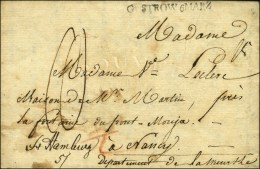 Madame
Madame Ve Leclerc
Maison de Mr Martin, près
la fontaine du pont-Mouja.
à Nancy
département de la meurthe